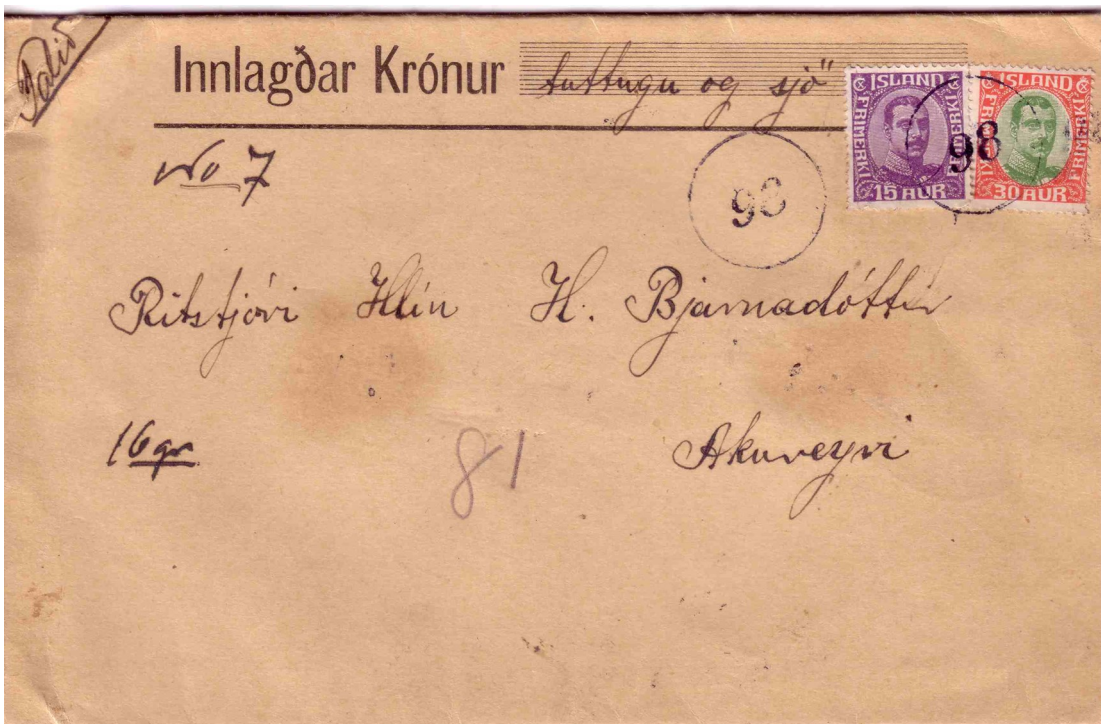 Talið
Innlagðar Krónur tuttugu og sjö"
ÍSLAND
FRIMERKI FRIMERKI
15 AUR
ÍSLAND
FRIMERKI FRIMERKI
30 AUR
98
98
No 7
Ritstjóri Hlín H. Bjarnadóttir
16 gr
81
Akureyri